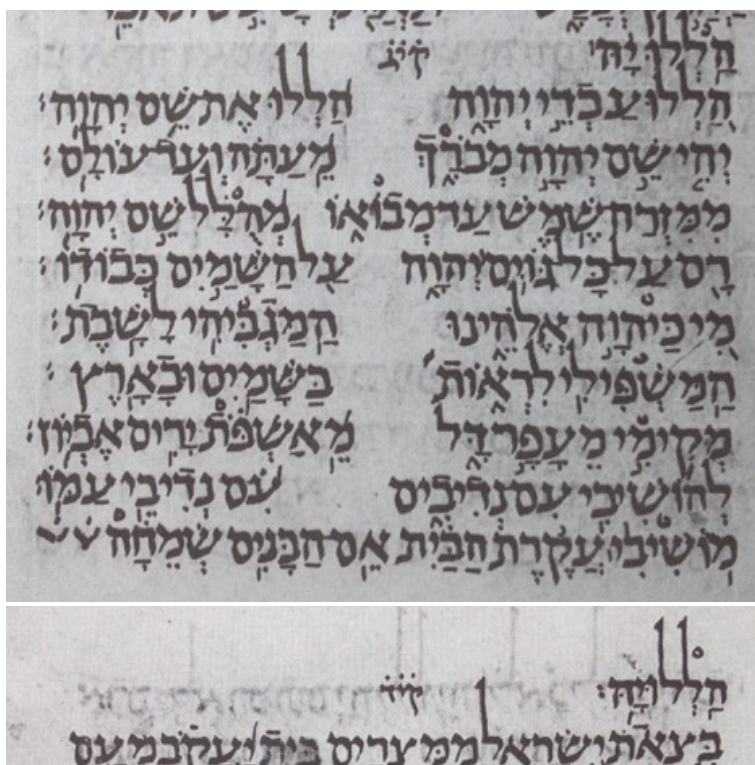 הַלְלוּ יָהּ קיג
הַלְלוּ עַבְדֵי יְהוָה הַלְלוּ אֶת שֵׁם יְהוָה:
יְהִי שֵׁם יְהוָה מְבֹרָךְ מֵעַתָּה וְעַד עוֹלָם:
מִמִּזְרַח שֶׁמֶשׁ עַד מְבוֹאוֹ מְהֻלָּל שֵׁם יְהוָה:
רָם עַל כָּל גּוֹיִם יְהוָה עַל הַשָּׁמַיִם כְּבוֹדוֹ:
מִי כַּיהוָה אֱלֹהֵינוּ הַמַּגְבִּיהִי לָשָׁבֶת:
הַמַּשְׁפִּילִי לִרְאוֹת בַּשָּׁמַיִם וּבָאָרֶץ:
מְקִימִי מֵעָפָר דָּל מֵאַשְׁפֹּת יָרִים אֶבְיוֹן:
לְהוֹשִׁיבִי עִם נְדִיבִים עִם נְדִיבֵי עַמּוֹ
מוֹשִׁיבִי עֲקֶרֶת הַבַּיִת אֵם הַבָּנִים שְׂמֵחָה
הַלְלוּיָהּ: קיד
בְּצֵאת יִשְׂרָאֵל מִמִּצְרָיִם בֵּית יַעֲקֹב מֵעַם